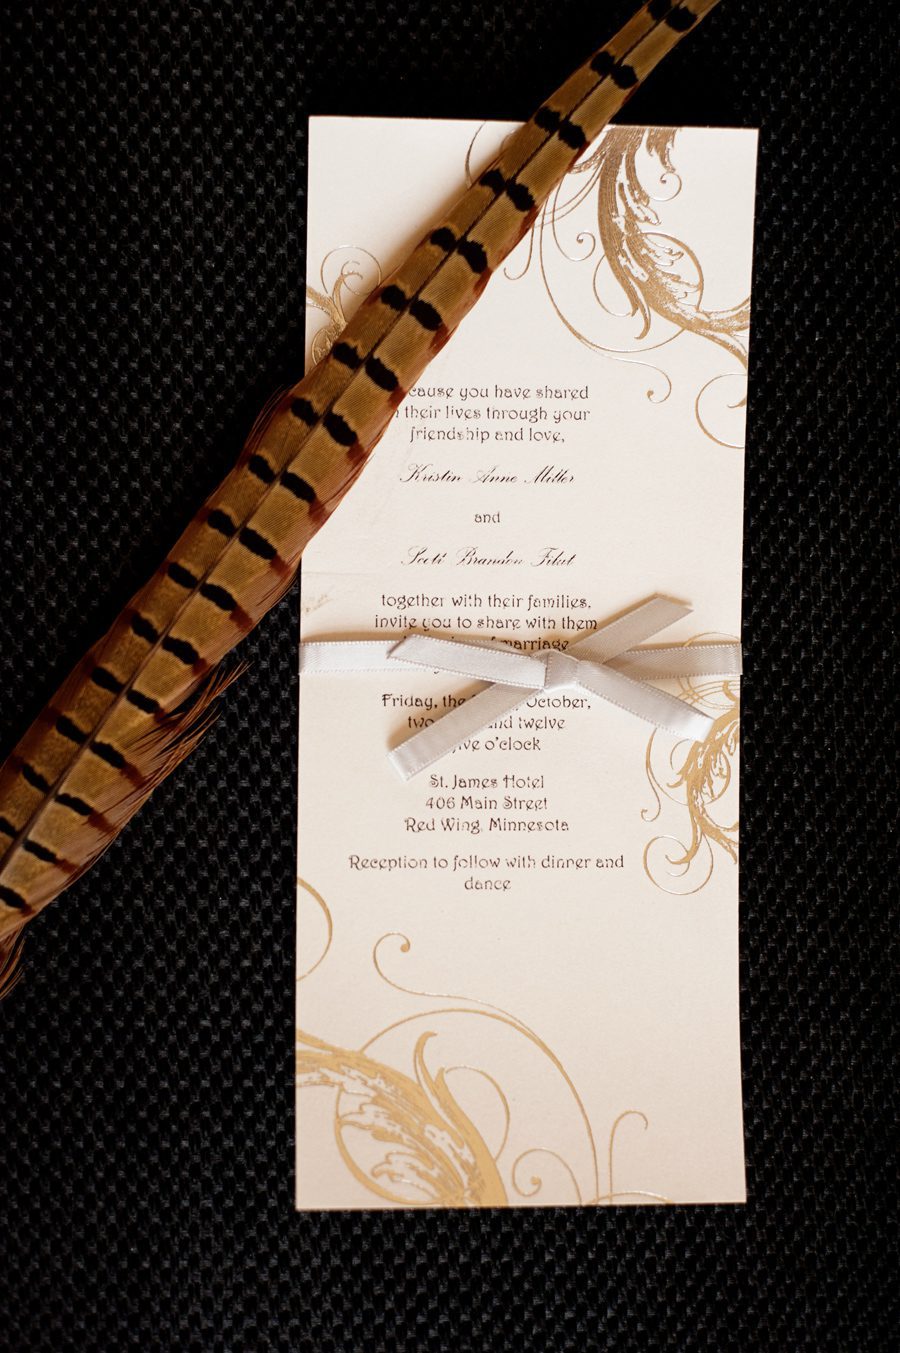 cause you have shared
their lives through your
friendship and love,
Kristin Anne Miller
and
Scott Brandon
together with their families,
invite you to share with them
marriage
Friday, the October,
twelve
o'clock
St. James Hotel
406 Main Street
Red Wing, Minnesota
Reception to follow with dinner and
dance